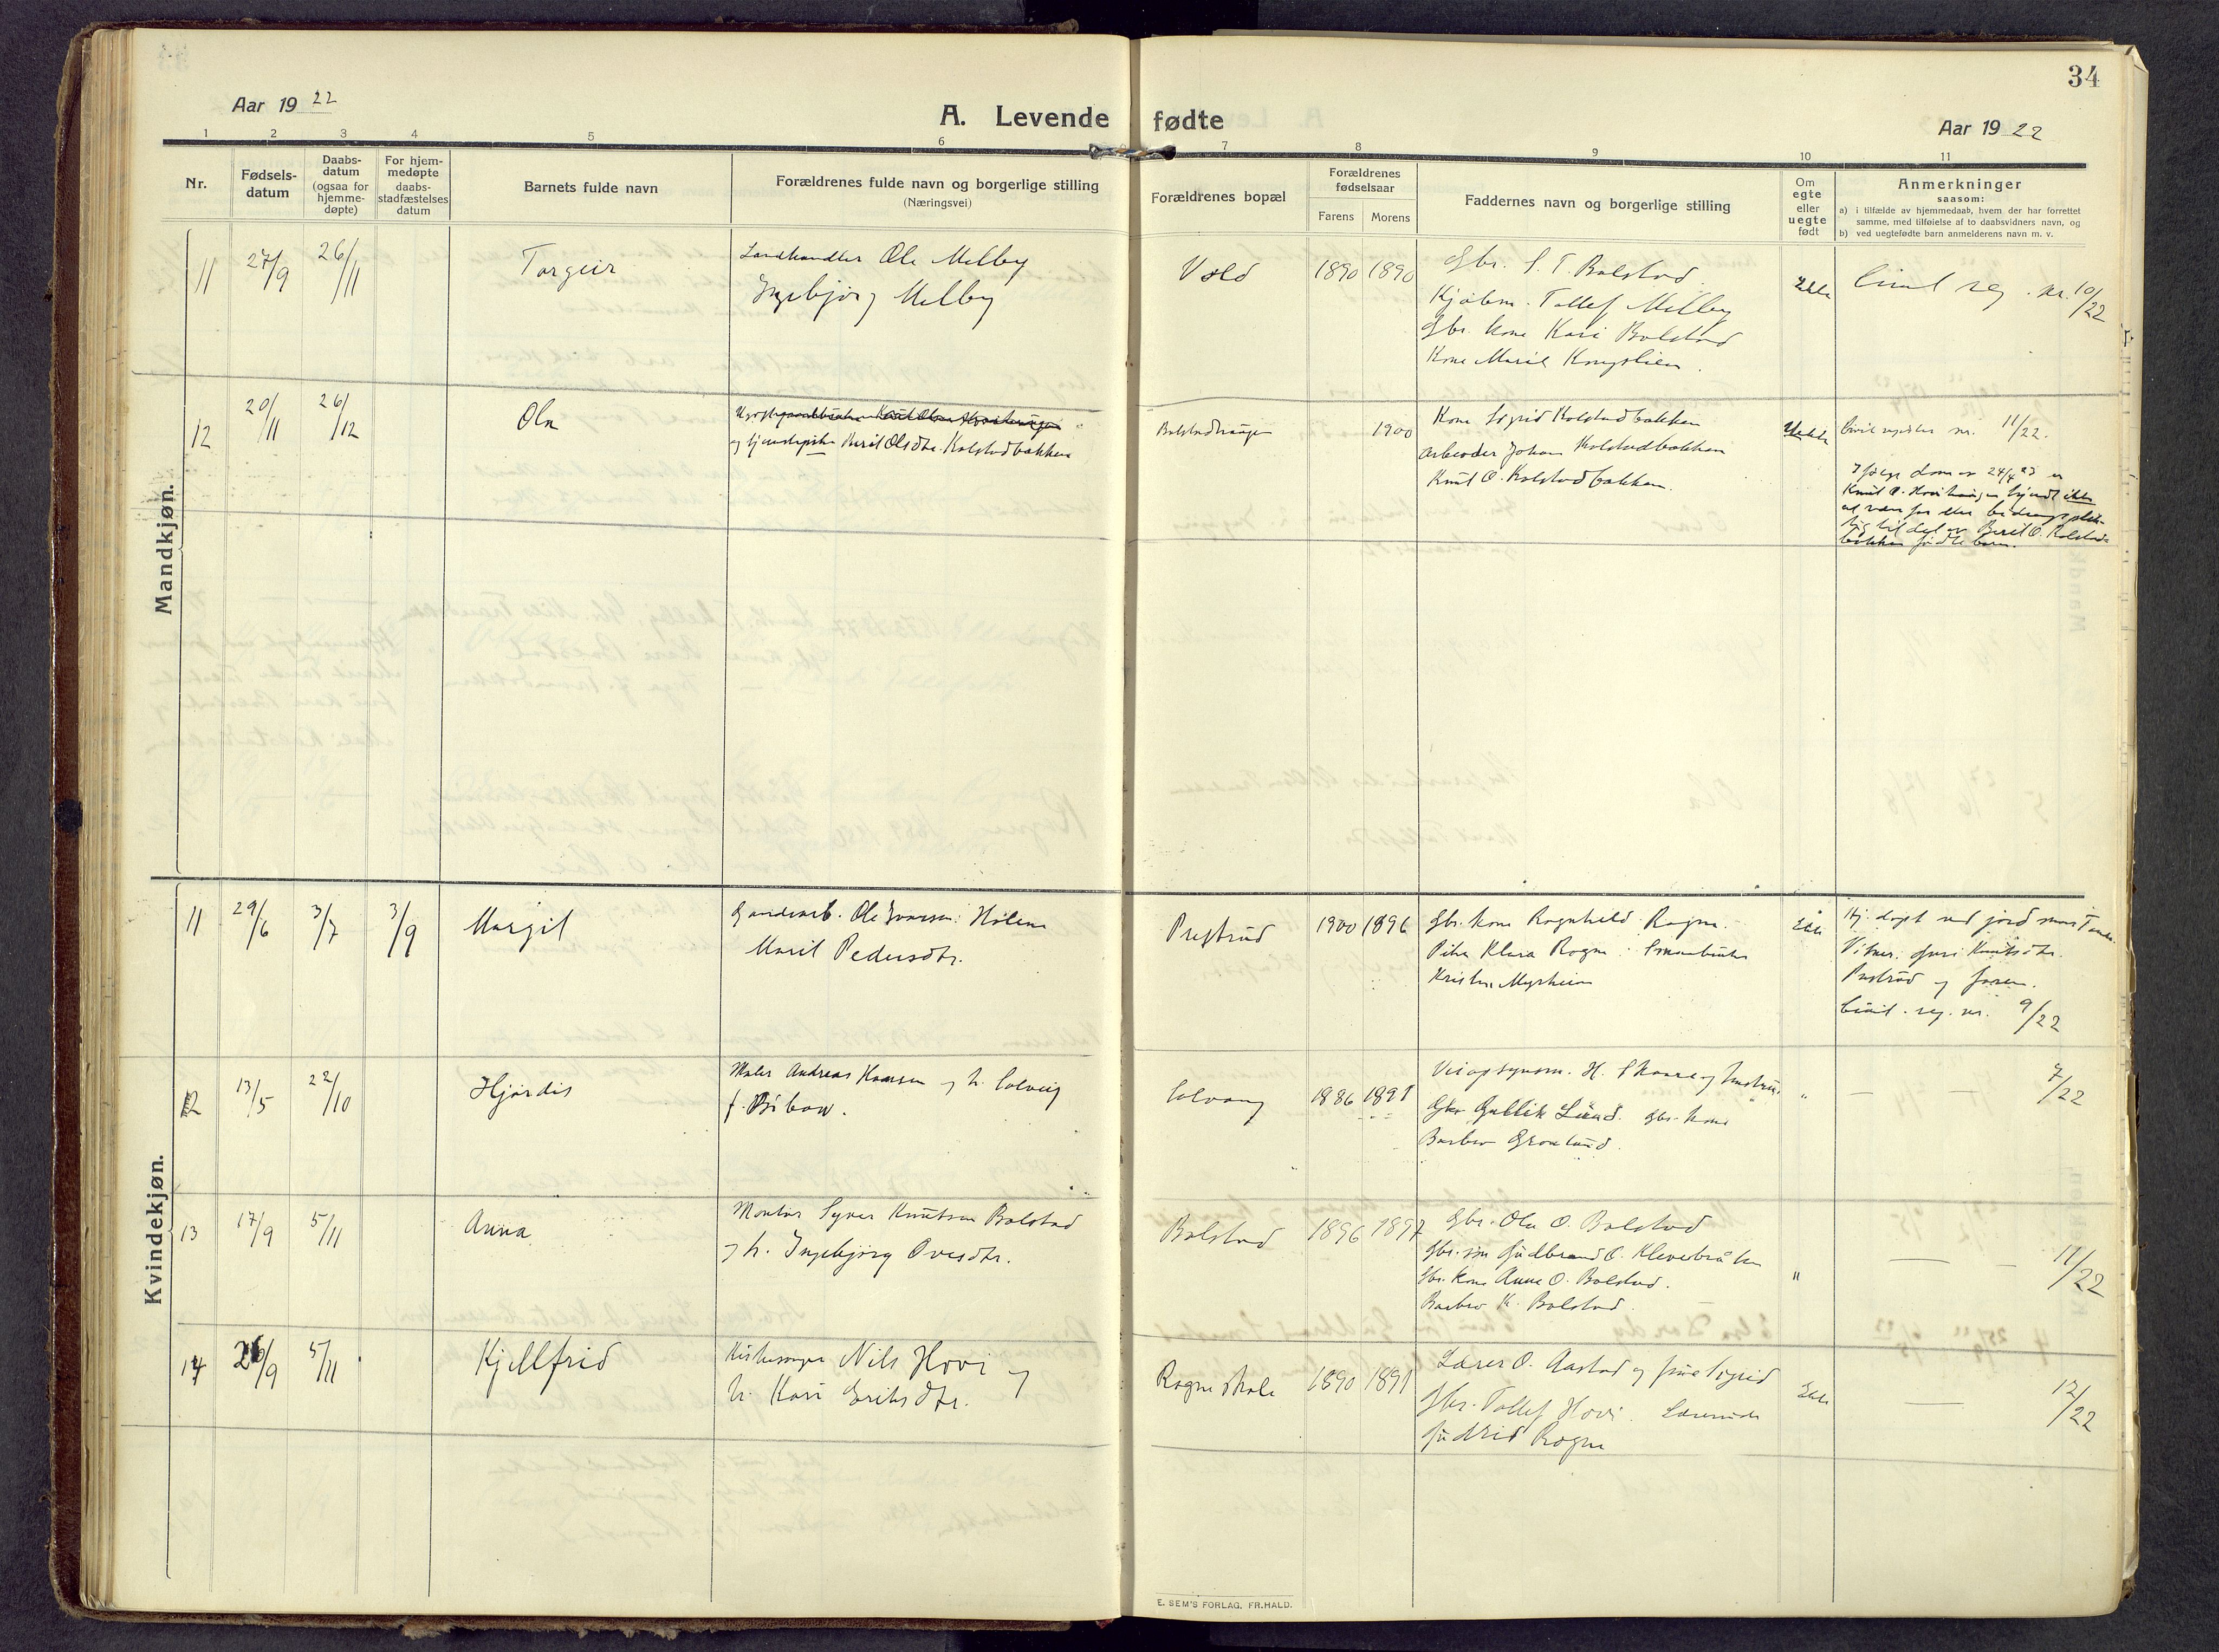 34
Aar 19 22
A. Levende fødte
Aar 19 22
1 2 3 4 5 6 7 8 9 10 11
Nr.
Fødsels-
datum
Daabs-
datum
(ogsaa for
hjemme-
døpte)
For hjem-
medøpte
daabs-
stadfæstelses
datum
Barnets fulde navn
Forældrenes fulde navn og borgerlige stilling
(Næringsvei)
Forældrenes bopæl
Forældrenes
fødselsaar
Farens Morens
Faddernes navn og borgerlige stilling
Om
egte
eller
uegte
født
Anmerkninger
saasom:
a) i tilfælde av hjemmedaab, hvem der har forrettet
samme, med tilføielse af to daabsvidners navn, og
b) ved uegtefødte barn anmelderens navn m. v.
Mandkjøn.
11 27/9 26/11 Torgeir
Landhandler Ole Melby
Ingebjørg Melby
Vold 1890 1890
Gbr. S. T. Bolstad.
Kjøbm. Tollef Melby
Gbr. kone Kari Bolstad
Kone Marit Kongslien.
Ekte
Civil reg. nr. 10/22
12 20/11 26/12 Ola
og tjenestepike Berit Olsdtr. Kolstadbakken
Bolstadhaugen 1900
Kone Sigrid Kolstadbakken
Arbeider Johan Kolstadbakken
Knut O. Kolstadbakken.
Uekte
Civil register nr. 11/22.
Ifølge dom av 24/4 23 er
Knut O. Hovihaugen kjendt ikke
at være far eller bidragsplik-
tig til det av Berit O. Kolstad-
bakken fødte barn.
Kvindekjøn.
11 29/6 3/7 3/9 Margit
Gaardsarb. Ole Ivarsen Hølen
Marit Pedersdtr.
Prestrud 1900 1896
Gbr. kone Ragnhild Rogne.
Pike Klara Rogne. Smaabruker
Kristen Myrheim
Ekte
Hj. døpt ved jordmor
Vitner. Guri Knutsdtr.
Prestrud og faren.
Civil. reg. nr. 9/22
12 13/5 22/10 Hjørdis
Maler Andreas Hansen og h. Solveig
f. Bibow.
Solvang 1886 1891
Veiopsynsm. H. Skaare og hustru.
Gbr Gullik Lund. Gbr. kone
Barbro Grønlund.
" — — 7/22
13 17/9 5/11 Anna
Montør Syver Knutsen Bolstad
og h. Ingebjørg Ovesdtr.
Bolstad 1896 1897
Gbr. Ole O. Bolstad
Gbr. søn Gudbrand O. Kleverbråten
Gbr. kone Anne O. Bolstad.
Barbro K. Bolstad.
" — — 11/22
14 26/9 5/11 Kjellfrid
Kirkesanger Nils Hovi og
h. Kari Eriksdtr.
Rogne skole 1890 1891
Lærer O. Aastad og frue Sigrid
Gbr. Tollef Hovi. Lærerinde
Gudrid Rogne
Ekte
— 12/22
E. SEM'S FORLAG, FR.HALD.